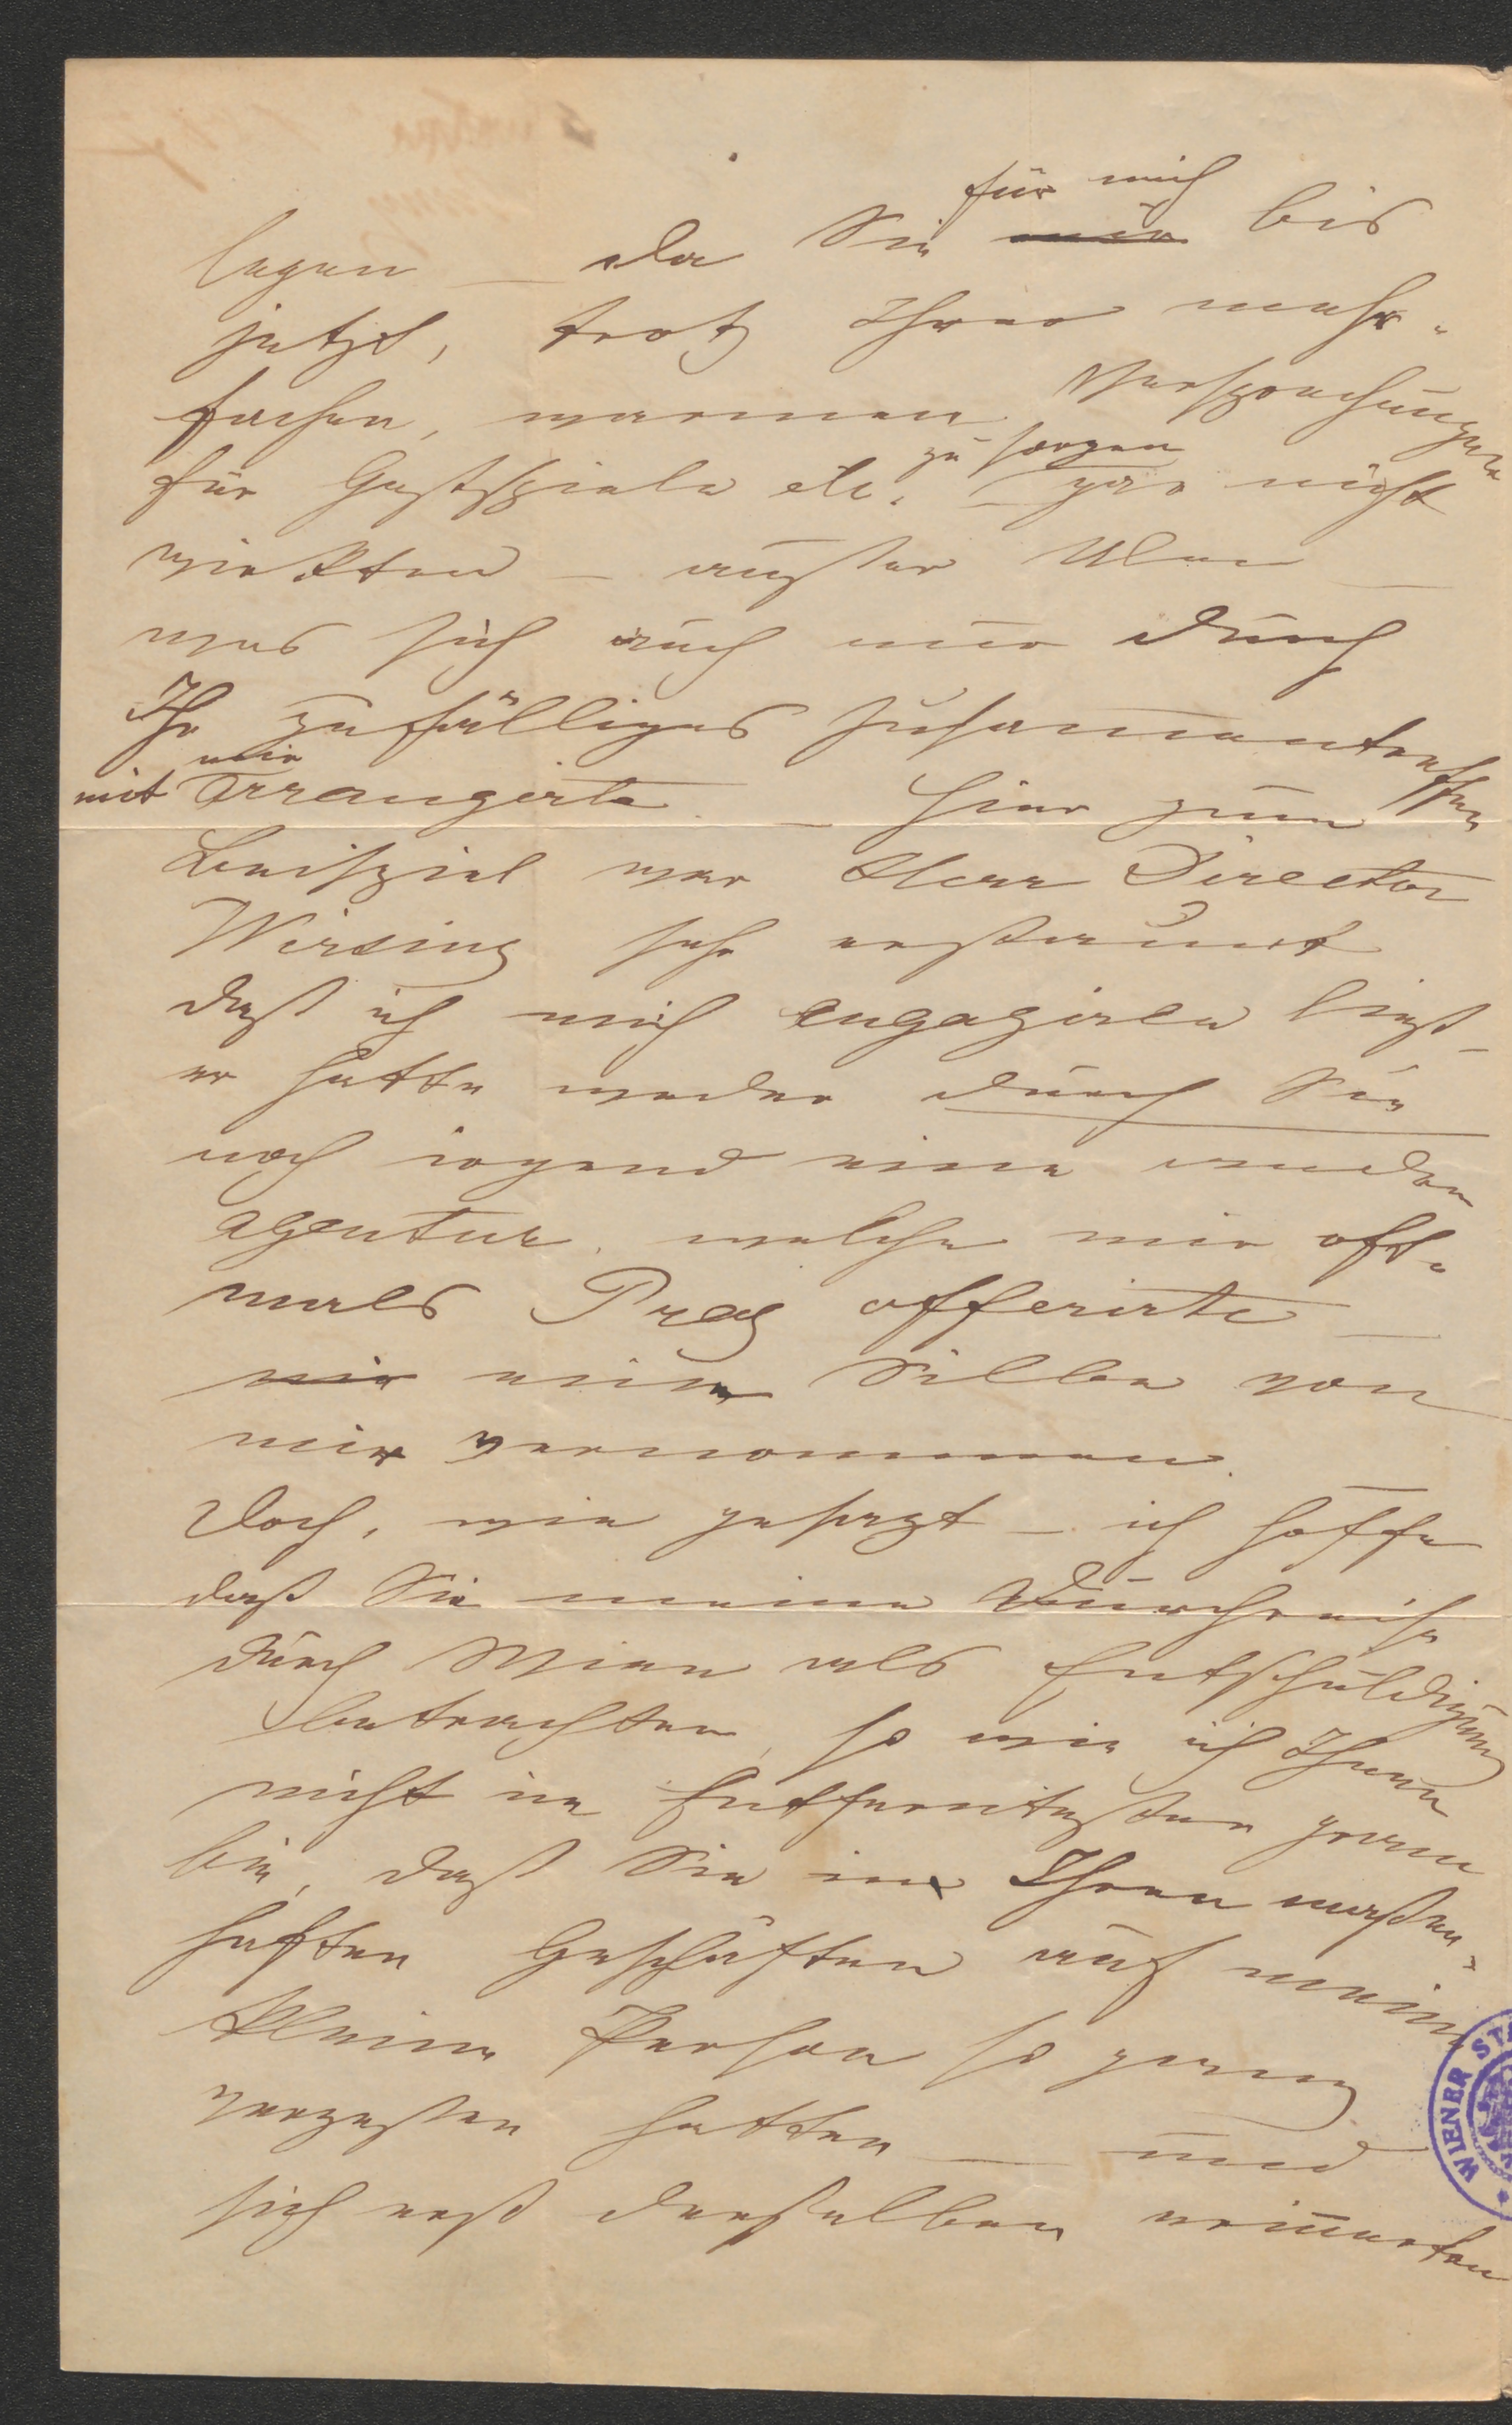 legen — da Sie für mich mir bis
jetzt, trotz Ihrer mehr-
fachen, warmen Versprechungen
für Gastspiele etc. zu sorgen — gar nicht
wirkten — außer Ulm —
was sich auch nur durch
Ihr zufälliges Zusamentreffen
mit mir arrangirte. — Hier zum
Beispiel war Herr Director
Wirsing sehr erstaunt
daß ich mich engagiren ließ —
er hatte weder durch Sie
noch irgend eine andere
Agentur, welche mir oft-
mals Prag offerirte —
mir eine Silbe von
mir vernommen.
Doch, wie gesagt — ich hoffe
daß Sie meine Durchreise
durch Wien als Entschuldigung
betrachten, so wie ich Ihnen
nicht im Entferntesten gram
bin, daß Sie in Ihren massen-
haften Geschäften auf meine
kleine Person so ganz
vergessen hatten — und
sich erst derselben erinnerten
WIENER ST